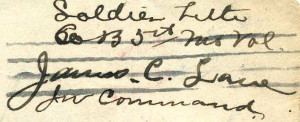 Soldier Lette
Co B 5th Mo Vol.
James. C. Lane
In Command.